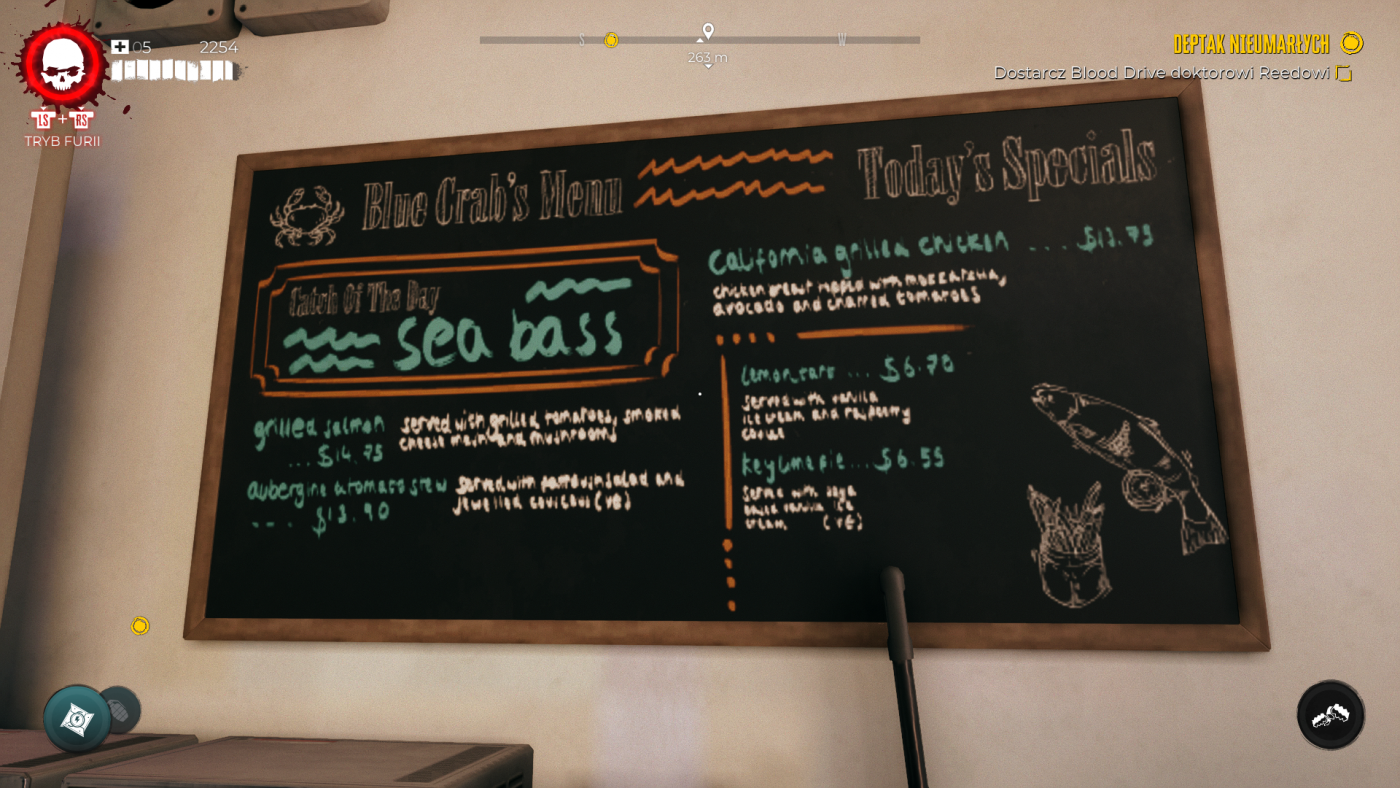 05 2254
LS + RS
TRYB FURII
S W
263 m
DEPTAK NIEUMARŁYCH
Dostarcz Blood Drive doktorowi Reedowi
Blue Crab's Menu
Catch Of The Day
sea bass
grilled salmon
...$14.75
served with grilled tomatoes, smoked
cheese and mushrooms
aubergine & tomato stew
... $13.90
served with salad and
jewelled couscous (VE)
Today's Specials
California grilled chicken ... $13.75
chicken breast topped with mozzarella,
avocado and charred tomatoes
Lemon tart ... $6.70
served with vanilla
ice cream and raspberry
coulis
key lime pie ... $6.55
served with soya
based vanilla ice
cream (VE)